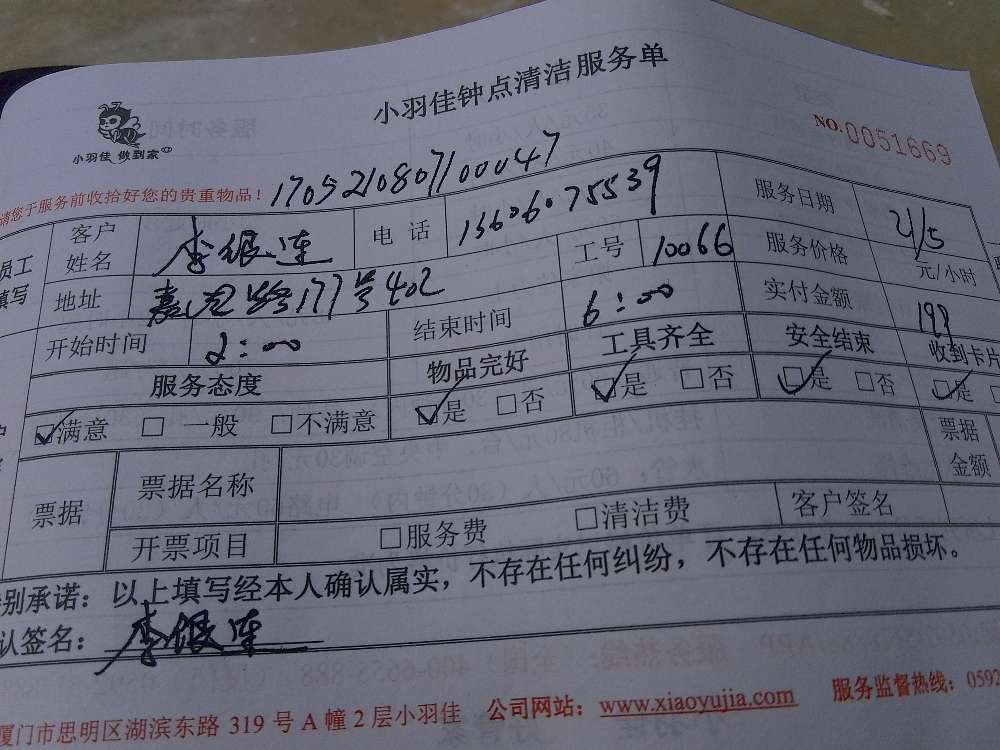 小羽佳钟点清洁服务单
小羽佳 做到家
NO.0051669
请您于服务前收拾好您的贵重物品！ 1705210807100047
员工填写 客户姓名 李银连 电话 13606075539 服务日期 21/5
地址 177号402 工号 10066 服务价格 元/小时
开始时间 2:00 结束时间 6:00 实付金额 192
服务态度 物品完好 工具齐全 安全结束 收到卡片
☑满意 □ 一般 □不满意 ☑是 □否 ☑是 □否 ☑是 □否 ☑是
票据 票据名称 票据金额
开票项目 □服务费 □清洁费 客户签名
别承诺：以上填写经本人确认属实，不存在任何纠纷，不存在任何物品损坏。
认签名：李银连
厦门市思明区湖滨东路 319 号 A 幢 2 层小羽佳 公司网站：www.xiaoyujia.com 服务监督热线：0592